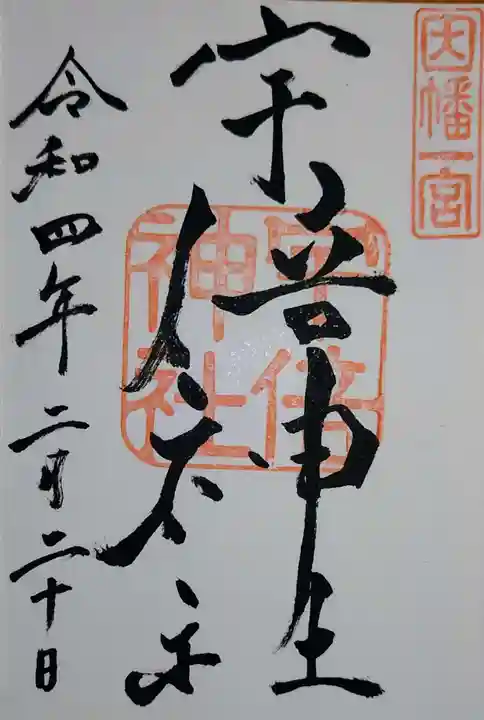 因幡一宮
宇倍神社
令和四年二月二十日
宇倍
神社